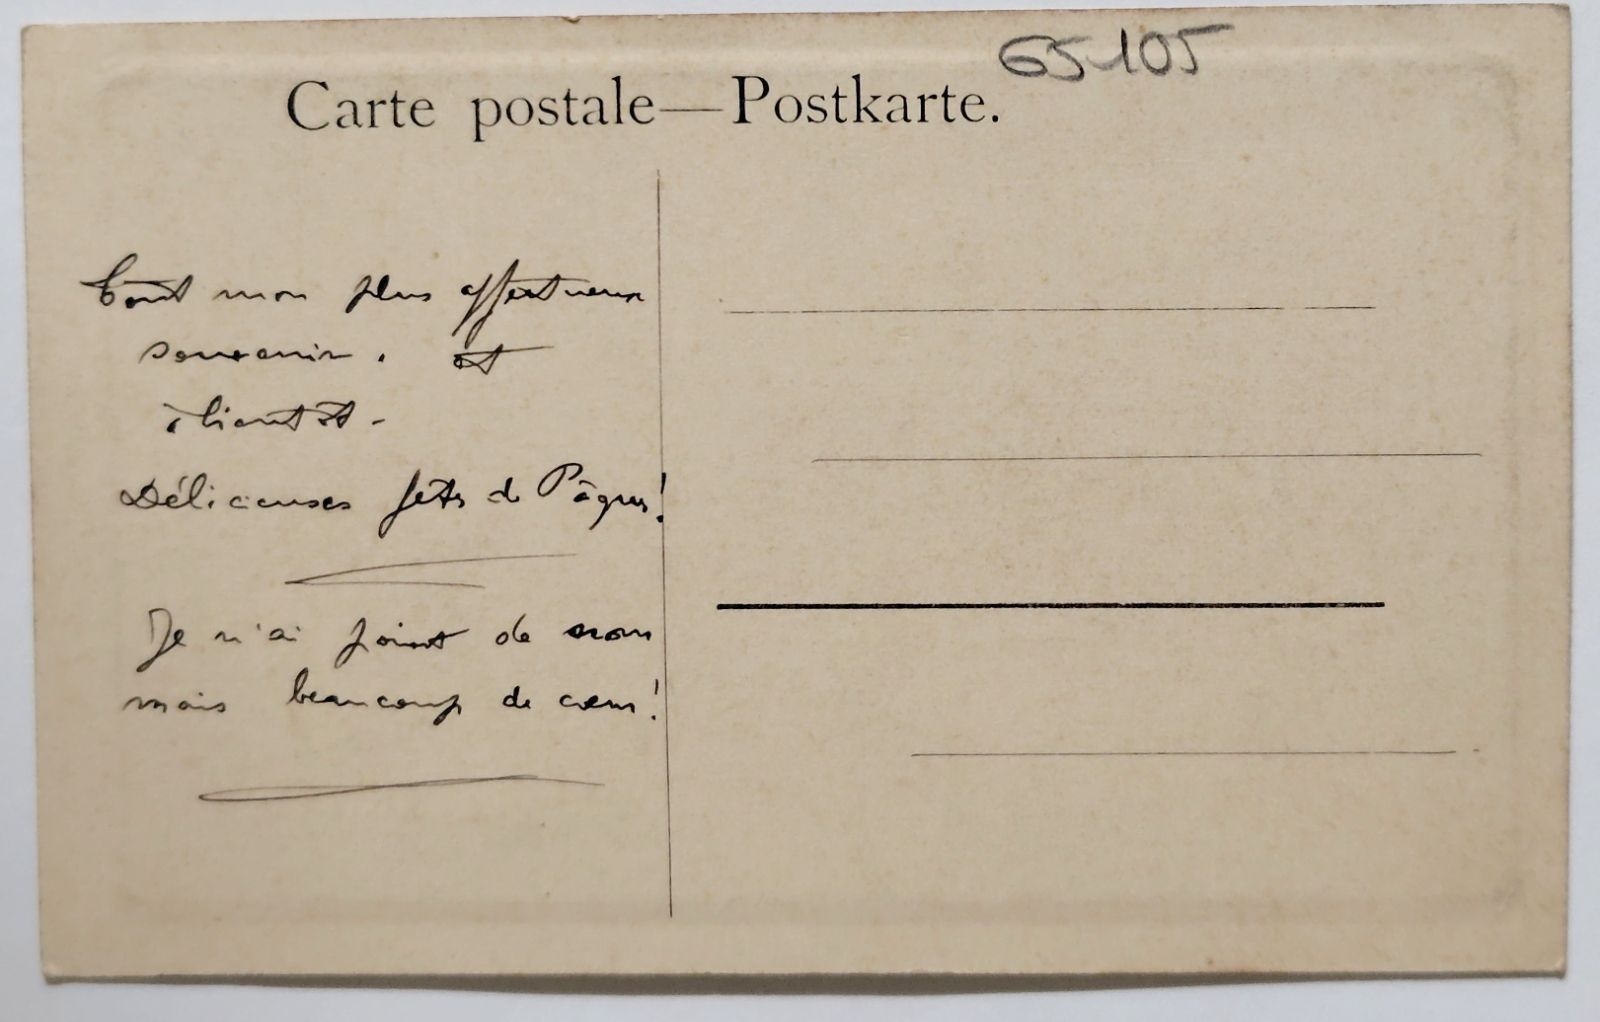 65-105
Carte postale—Postkarte.
Tout mon plus affectueux
souvenir. et
à bientôt -
Délicieuses fêtes de Pâques!
Je n'ai point de nom
mais beaucoup de cœur!